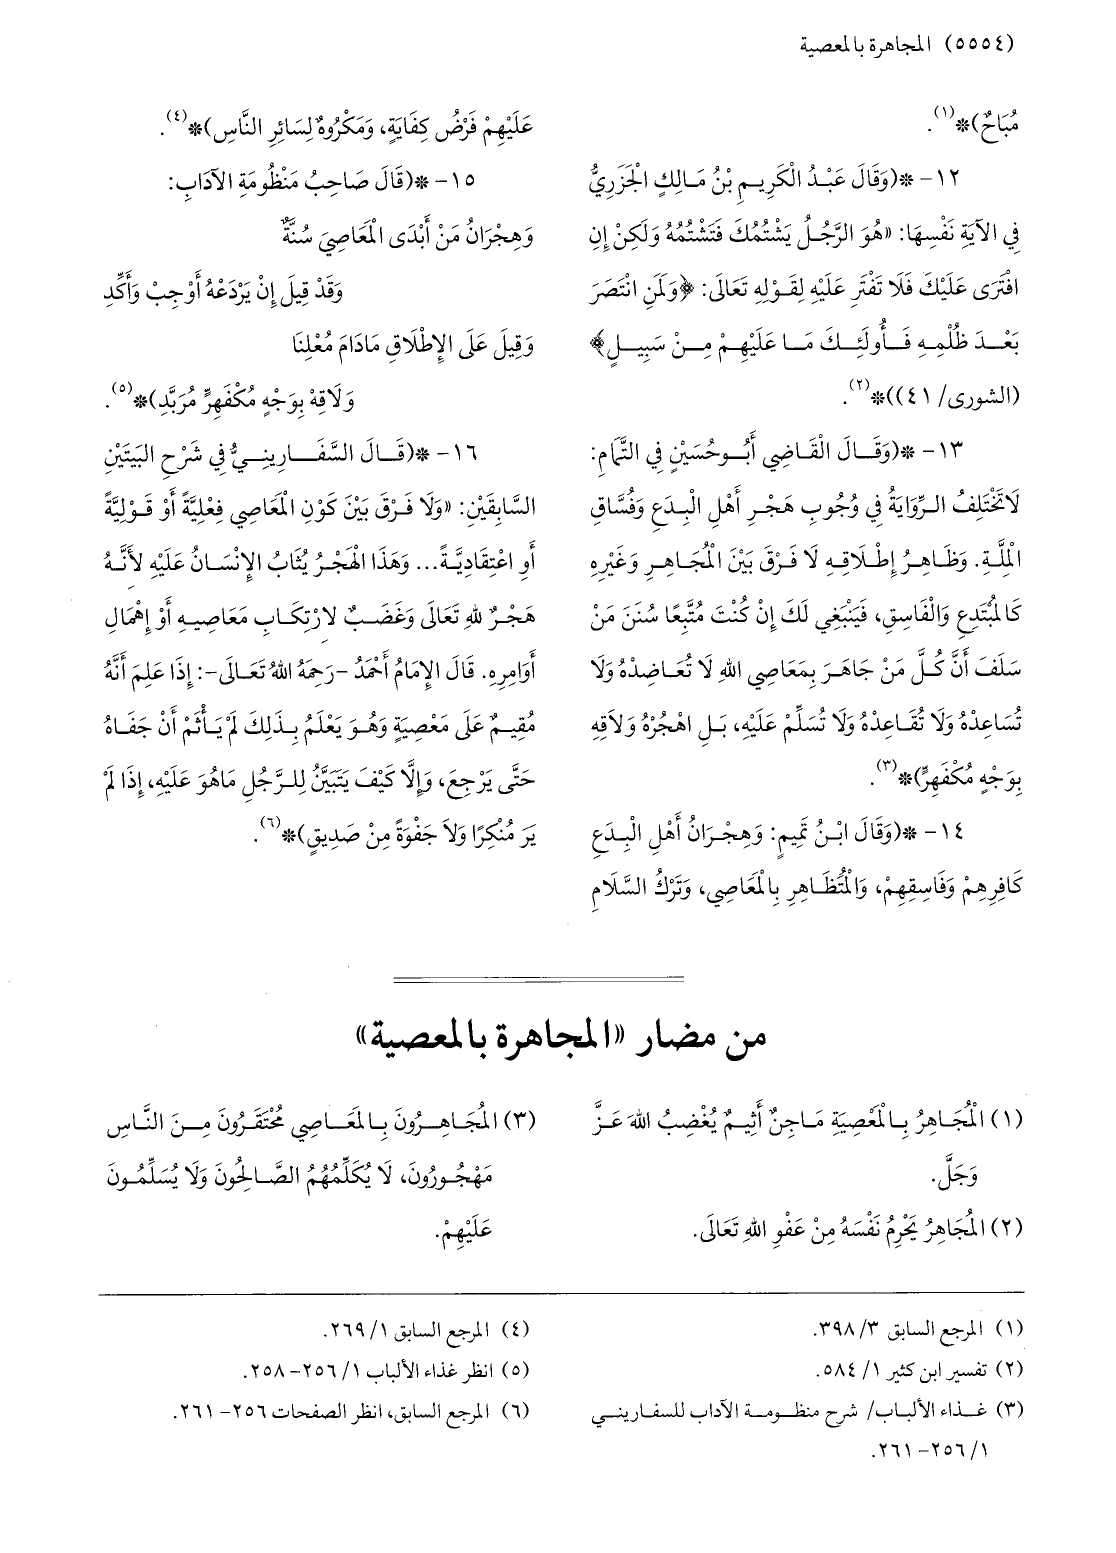 (٥٥٥٤) المجاهرة بالمعصية
مُبَاحٌ)*(١).
١٢- *(وَقَالَ عَبْدُ الْكَرِيمِ بْنُ مَالِكٍ الْجَزَرِيُّ
فِي الآيَةِ نَفْسِهَا: «هُوَ الرَّجُلُ يَشْتُمُكَ فَتَشْتُمُهُ وَلَكِنْ إِنِ
افْتَرَى عَلَيْكَ فَلَا تَفْتَرِ عَلَيْهِ لِقَوْلِهِ تَعَالَى: ﴿وَلَمَنِ انْتَصَرَ
بَعْدَ ظُلْمِهِ فَأُولَئِكَ مَا عَلَيْهِمْ مِنْ سَبِيلٍ﴾
(الشورى/ ٤١))*(٢).
١٣- *(وَقَالَ الْقَاضِي أَبُو حُسَيْنٍ فِي التَّمَامِ:
لَا تَخْتَلِفُ الرِّوَايَةُ فِي وُجُوبِ هَجْرِ أَهْلِ الْبِدَعِ وَفُسَّاقِ
الْمِلَّةِ. وَظَاهِرُ إِطْلَاقِهِ لَا فَرْقَ بَيْنَ الْمُجَاهِرِ وَغَيْرِهِ
كَالمُبْتَدِعِ وَالْفَاسِقِ، فَيَنْبَغِي لَكَ إِنْ كُنْتَ مُتَّبِعًا سُنَنَ مَنْ
سَلَفَ أَنَّ كُلَّ مَنْ جَاهَرَ بِمَعَاصِي اللهِ لَا تُعَاضِدْهُ وَلَا
تُسَاعِدْهُ وَلَا تُقَاعِدْهُ وَلَا تُسَلِّمْ عَلَيْهِ، بَلِ اهْجُرْهُ وَلَاقِهِ
بِوَجْهٍ مُكْفَهِرٍّ)*(٣).
١٤- *(وَقَالَ ابْنُ تَمِيمٍ: وَهِجْرَانُ أَهْلِ الْبِدَعِ
كَافِرِهِمْ وَفَاسِقِهِمْ، وَالْمُتَظَاهِرِ بِالْمَعَاصِي، وَتَرْكُ السَّلَامِ
عَلَيْهِمْ فَرْضُ كِفَايَةٍ، وَمَكْرُوهٌ لِسَائِرِ النَّاسِ)*(٤).
١٥- *(قَالَ صَاحِبُ مَنْظُومَةِ الآدَابِ:
وَهِجْرَانُ مَنْ أَبْدَى الْمَعَاصِيَ سُنَّةٌ
وَقَدْ قِيلَ إِنْ يَرْدَعْهُ أَوْجِبْ وَأَكِّدِ
وَقِيلَ عَلَى الإِطْلَاقِ مَادَامَ مُعْلِنَا
وَلَاقِهْ بِوَجْهٍ مُكْفَهِرٍّ مُرَبَّدِ)*(٥).
١٦- *(قَالَ السَّفَارِينِيُّ فِي شَرْحِ البَيْتَيْنِ
السَّابِقَيْنِ: «وَلَا فَرْقَ بَيْنَ كَوْنِ الْمَعَاصِي فِعْلِيَّةً أَوْ قَوْلِيَّةً
أَوِ اعْتِقَادِيَّةً... وَهَذَا الْهَجْرُ يُثَابُ الإِنْسَانُ عَلَيْهِ لأَنَّهُ
هَجْرٌ للهِ تَعَالَى وَغَضَبٌ لارْتِكَابِ مَعَاصِيهِ أَوْ إِهْمَالِ
أَوَامِرِهِ. قَالَ الإِمَامُ أَحْمَدُ -رَحِمَهُ اللهُ تَعَالَى-: إِذَا عَلِمَ أَنَّهُ
مُقِيمٌ عَلَى مَعْصِيَةٍ وَهُوَ يَعْلَمُ بِذَلِكَ لَمْ يَأْثَمْ أَنْ جَفَاهُ
حَتَّى يَرْجِعَ، وَإِلَّا كَيْفَ يَتَبَيَّنُ لِلرَّجُلِ مَاهُوَ عَلَيْهِ، إِذَا لَمْ
يَرَ مُنْكِرًا وَلَا جَفْوَةً مِنْ صَدِيقٍ)*(٦).
من مضار «المجاهرة بالمعصية»
(١) الْمُجَاهِرُ بِالْمَعْصِيَةِ مَاجِنٌ أَثِيمٌ يُغْضِبُ اللهَ عَزَّ
وَجَلَّ.
(٢) الْمُجَاهِرُ يَحْرِمُ نَفْسَهُ مِنْ عَفْوِ اللهِ تَعَالَى.
(٣) الْمُجَاهِرُونَ بِالْمَعَاصِي مُحْتَقَرُونَ مِنَ النَّاسِ
مَهْجُورُونَ، لَا يُكَلِّمُهُمُ الصَّالِحُونَ وَلَا يُسَلِّمُونَ
عَلَيْهِمْ.
(١) المرجع السابق ٣/ ٣٩٨.
(٢) تفسير ابن كثير ١/ ٥٨٤.
(٣) غذاء الألباب/ شرح منظومة الآداب للسفاريني
١/ ٢٥٦- ٢٦١.
(٤) المرجع السابق ١/ ٢٦٩.
(٥) انظر غذاء الألباب ١/ ٢٥٦- ٢٥٨.
(٦) المرجع السابق، انظر الصفحات ٢٥٦- ٢٦١.